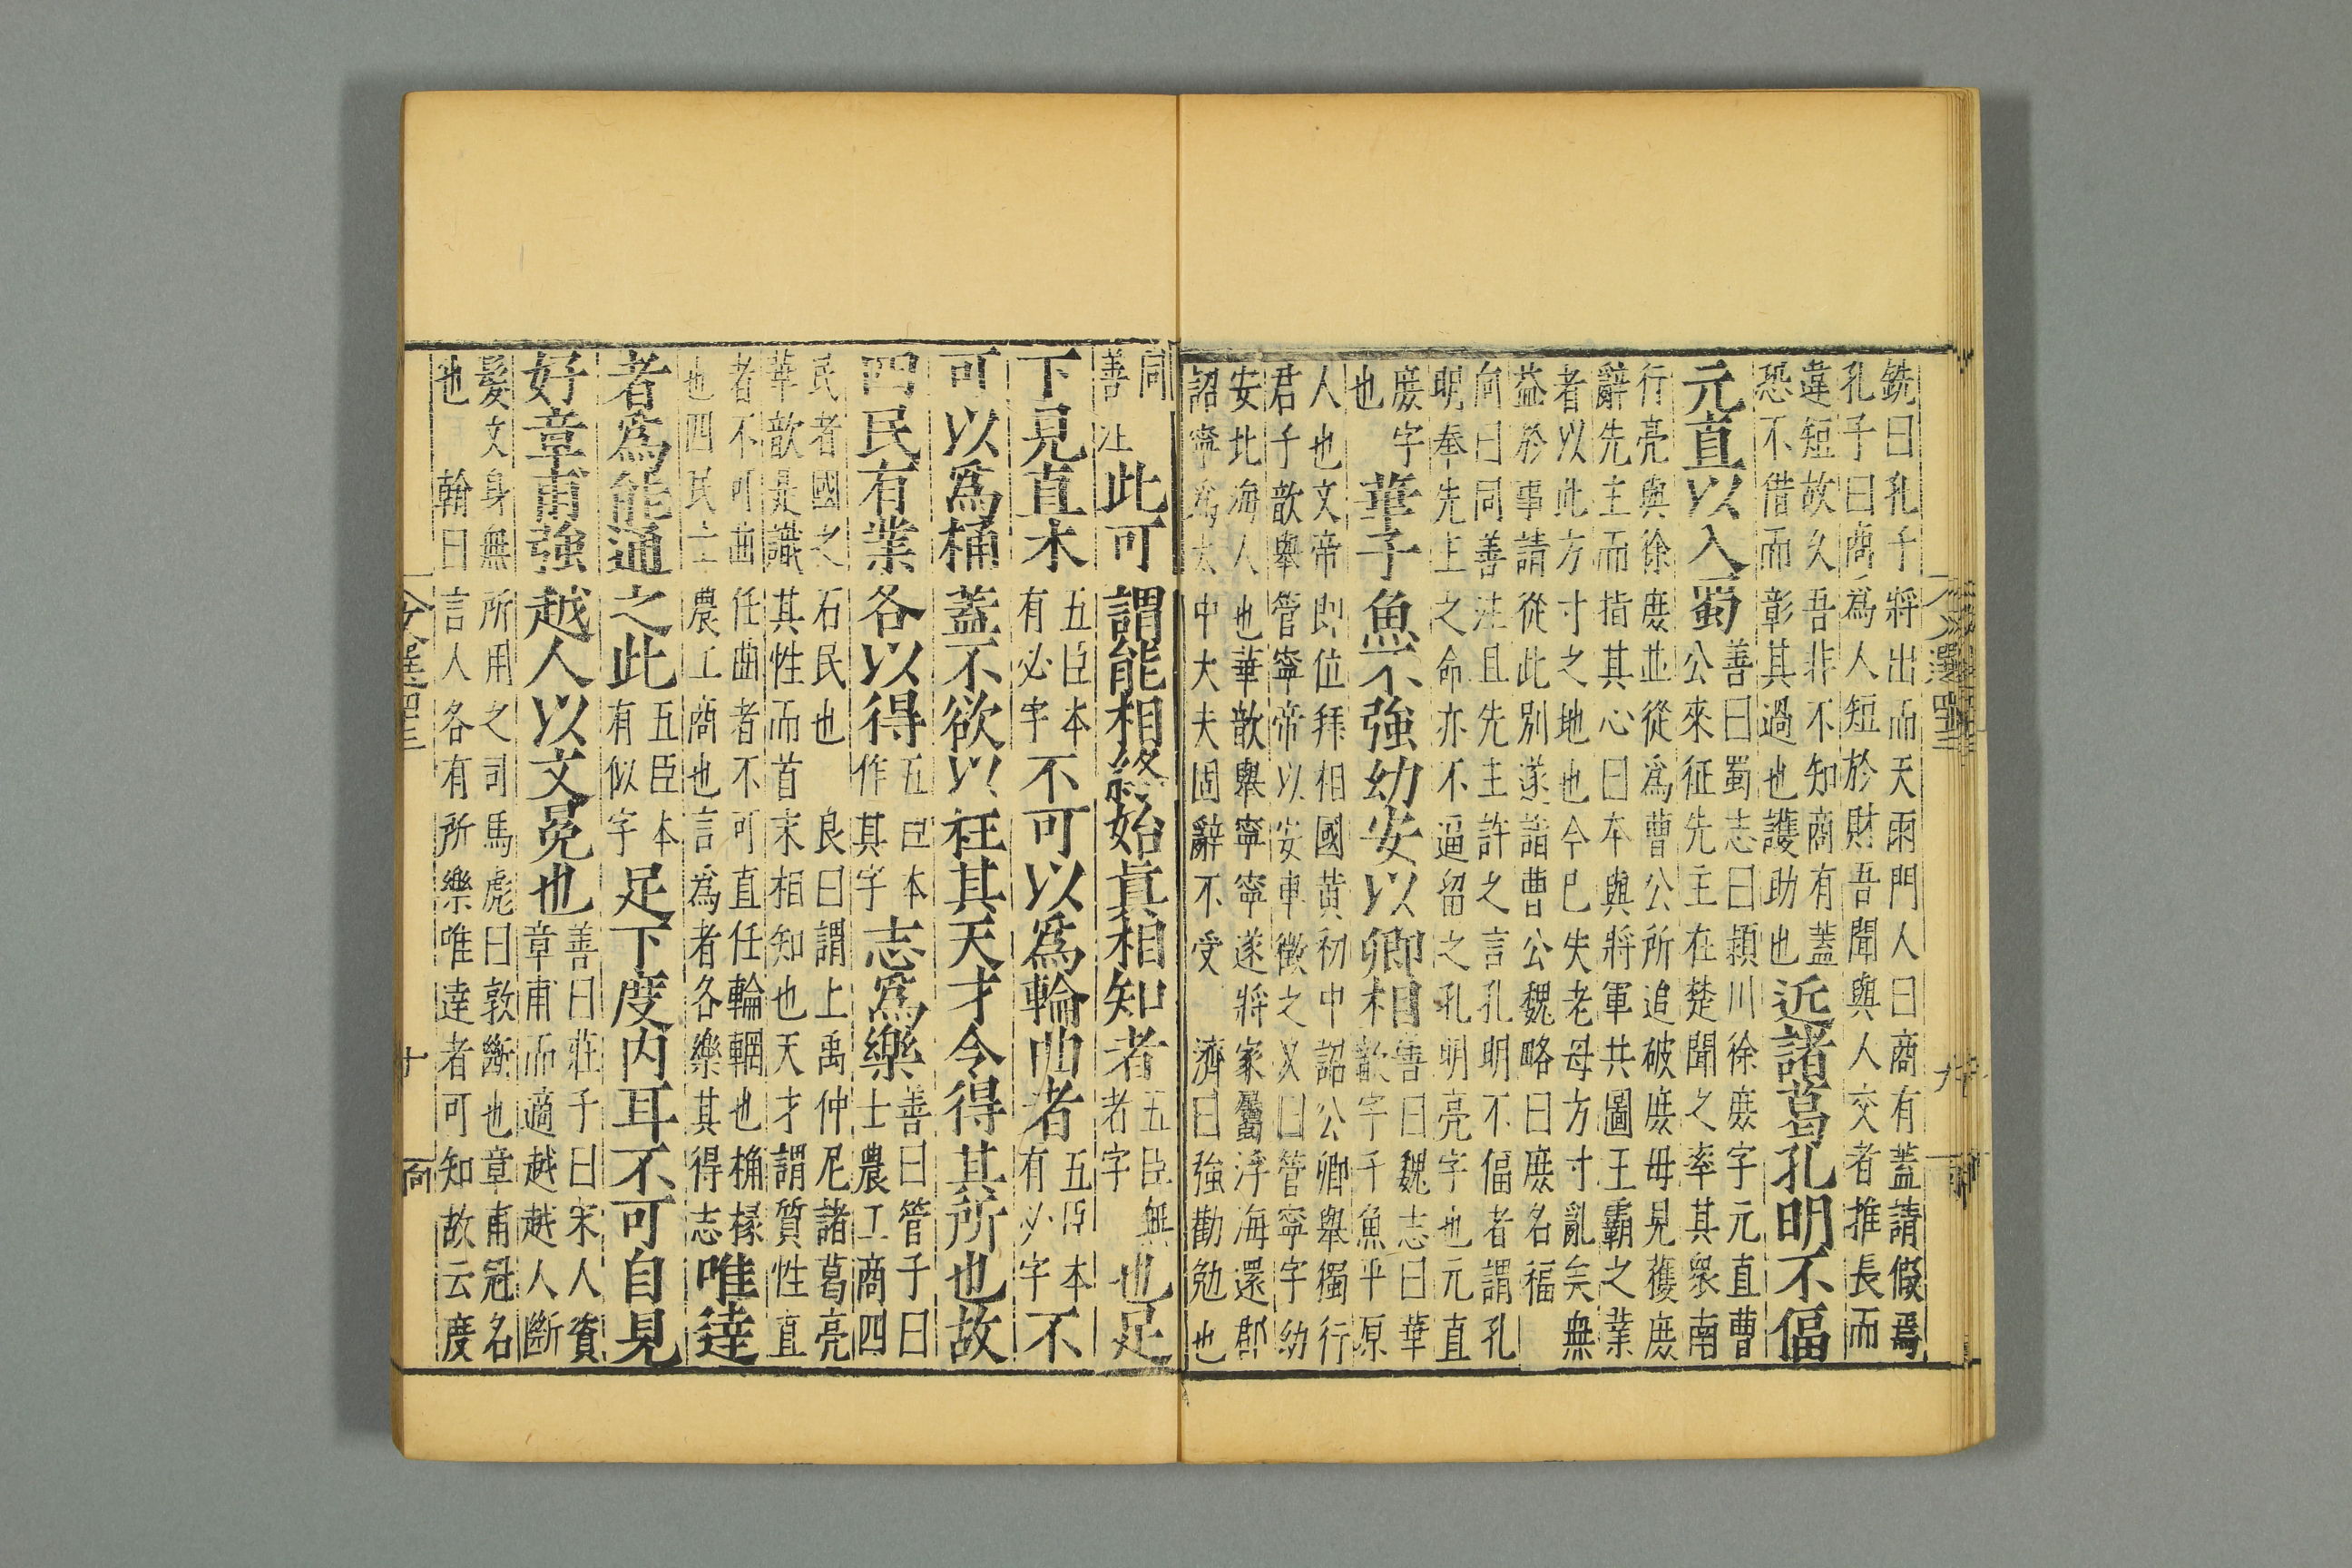 銑曰孔子將出而天雨門人曰商有蓋請假焉
孔子曰商爲人短於財吾聞與人交者推長而
違短故久吾非不知商有蓋
恐不借而彰其過也護助也
近諸葛孔明不偪
元直以入蜀
善曰蜀志曰潁川徐庶字元直曹
公來征先主在楚聞之率其衆南
行亮與徐庶並從爲曹公所追破庶母見獲庶
辭先主而指其心曰本與將軍共圖王霸之業
者以此方寸之地也今已失老母方寸亂矣無
益於事請從此別遂詣曹公魏略曰庶名福
向曰同善注且先主許之言孔明不偪者謂孔
明奉先主之命亦不逼留之孔明亮字也元直
庶字
也
華子魚不強幼安以卿相
善曰魏志曰華
歆字子魚平原
人也文帝即位拜相國黃初中詔公卿舉獨行
君子歆舉管寧帝以安車徵之又曰管寧字幼
安北海人也華歆舉寧寧遂將家屬浮海還郡
詔寧爲太中大夫固辭不受 濟曰強勸勉也
同
善注
此可謂能相終始眞相知者
五臣無
者字
也足
下見直木
五臣本
有必字
不可以爲輪曲者
五臣本
有必字
不
可以爲桷蓋不欲以枉其天才令得其所也故
四民有業各以得
五臣本
作其字
志爲樂
善曰管子曰
士農工商四
民者國之石民也 良曰謂上禹仲尼諸葛亮
華歆是識其性而首末相知也天才謂質性直
者不可曲任曲者不可直任輪輞也桷椽
也四民士農工商也言爲者各樂其得志
唯達
者爲能通之此
五臣本
有似字
足下度内耳不可自見
好章甫強越人以文冕也
善曰莊子曰宋人資
章甫而適越越人斷
髮文身無所用之司馬彪曰敦斷也章甫冠名
也 翰曰言人各有所樂唯達者可知故云度